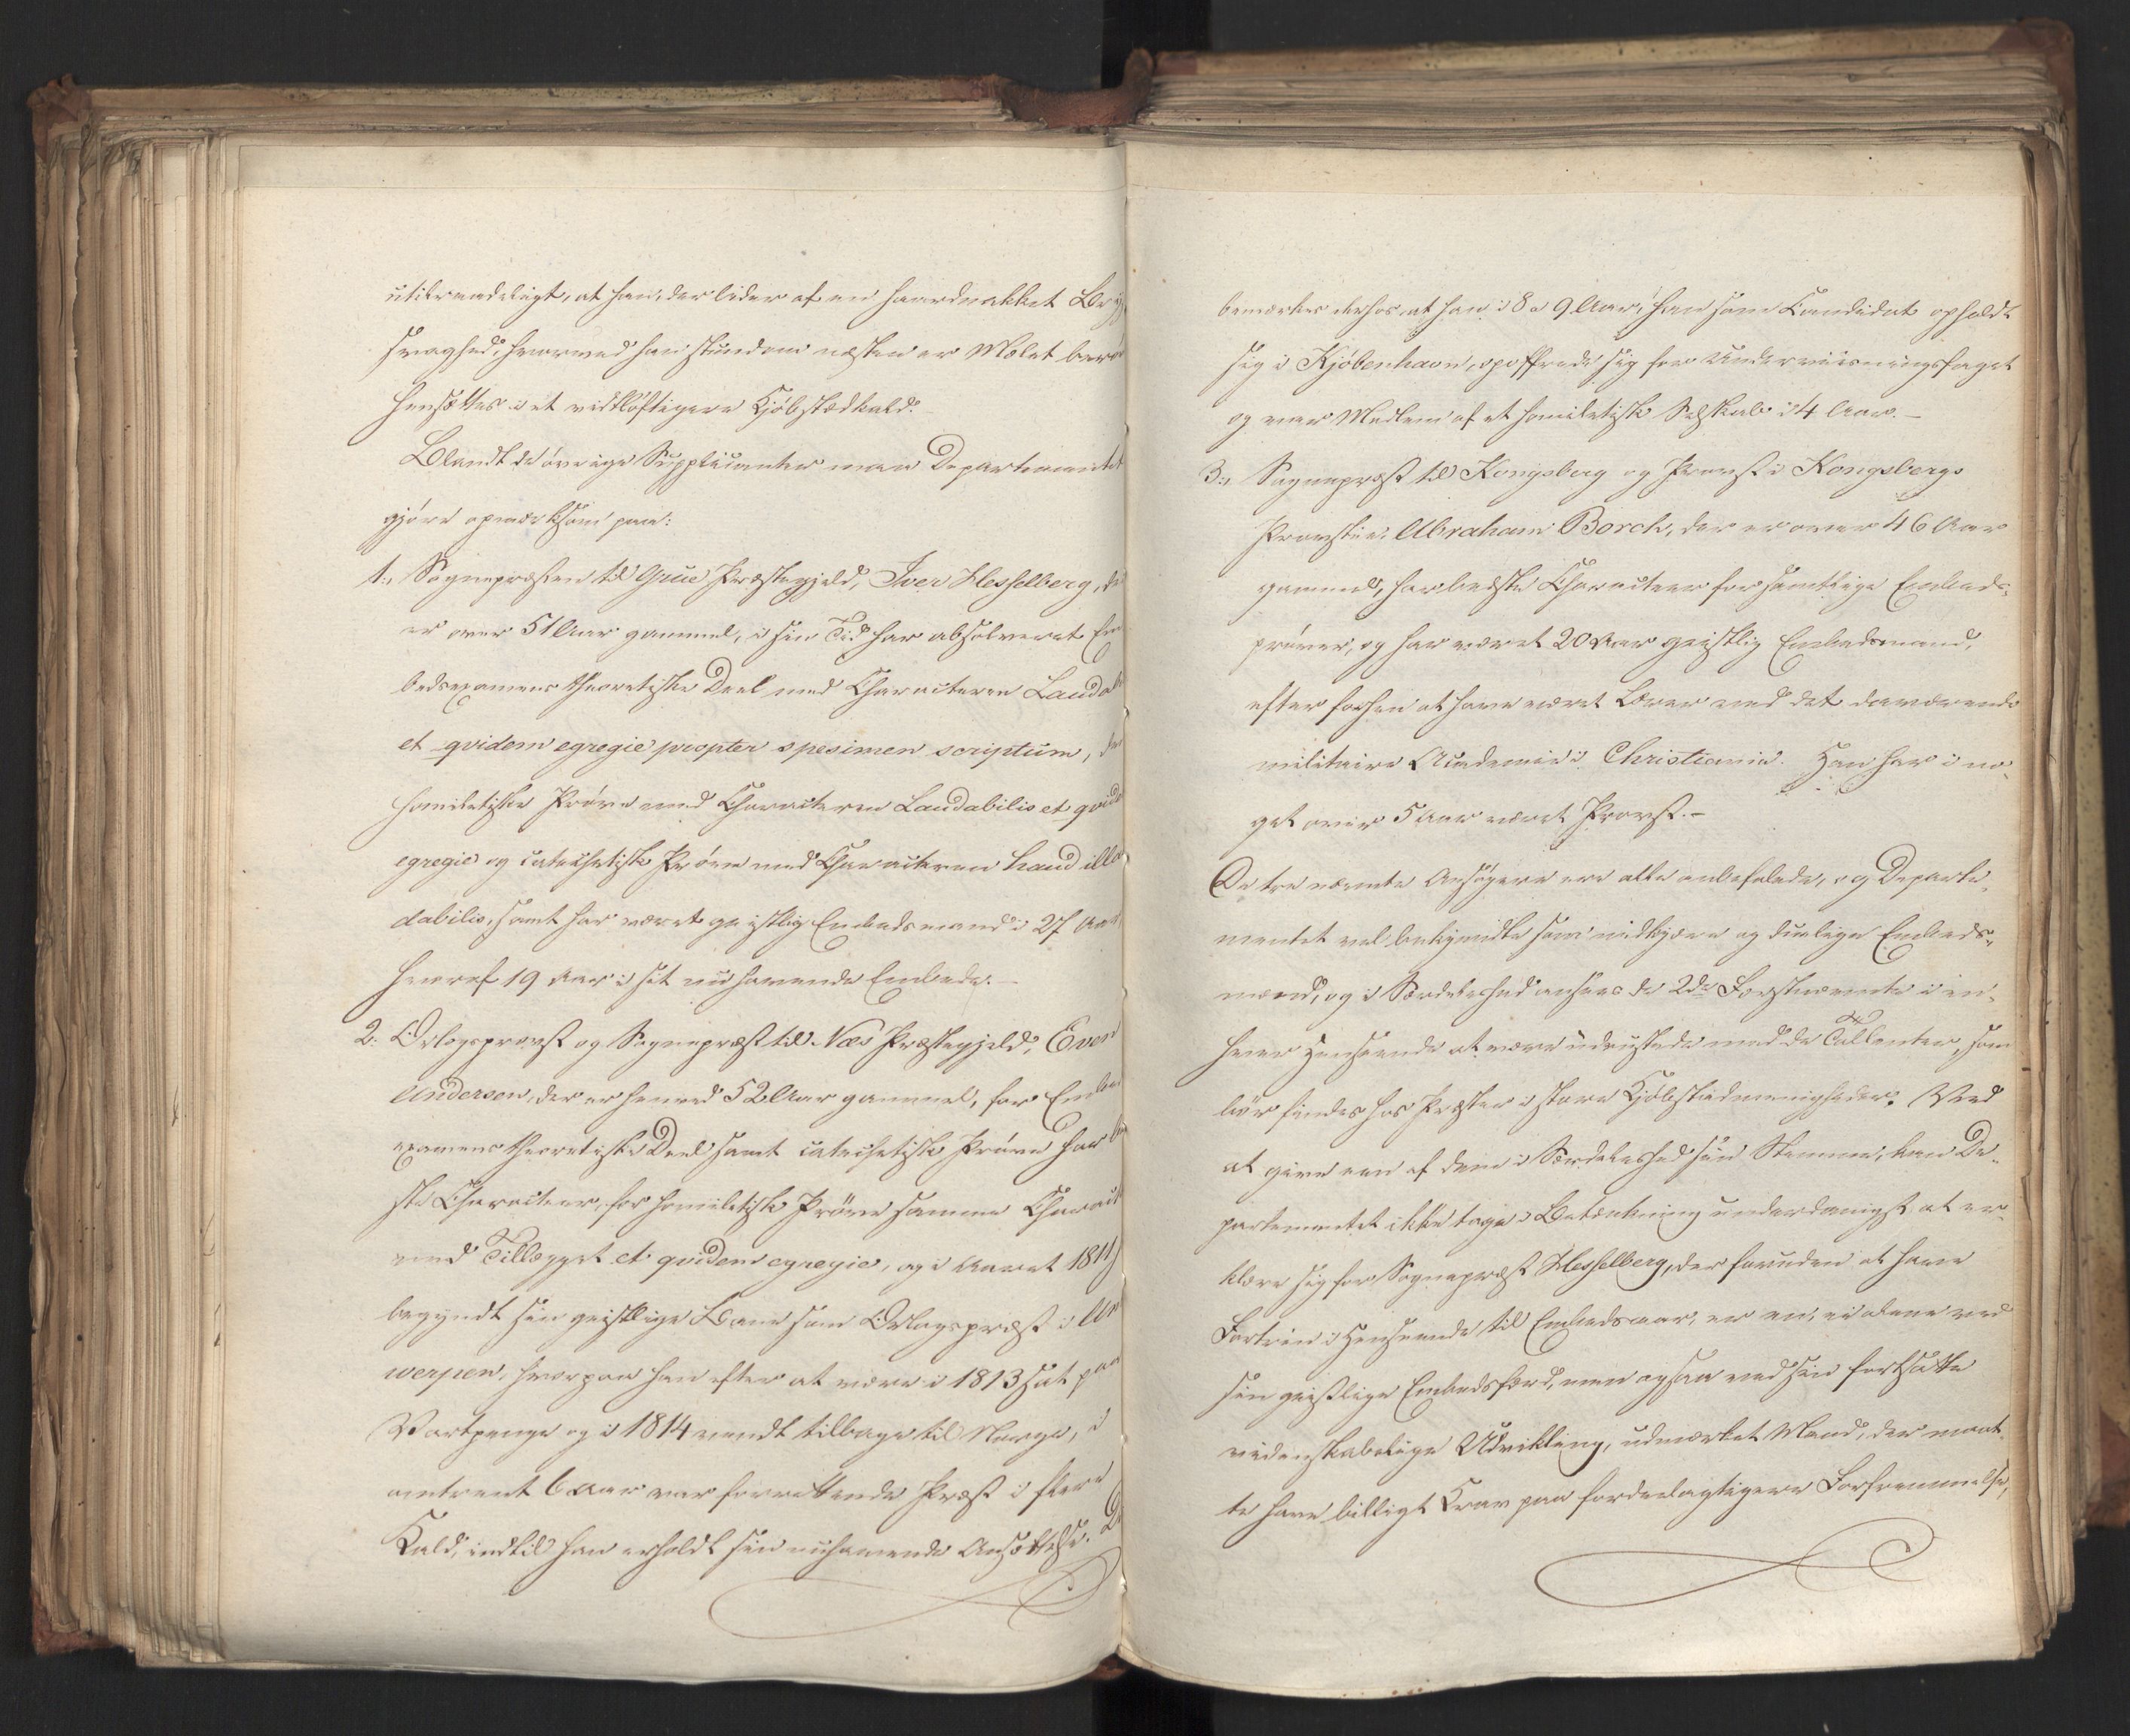 utilraadeligt, at han, der lider af en haardnakket Bryst
svaghed, hvorved han stundom næsten er Mælet berøvet
hensættes i et vidtløftigere Kjøbstædkald.
Blandt de øvrige Supplicanter maa Departementet
gjøre opmærksom paa:
1., Sognepræsten til Grue Præstegjeld, Iver Hesselberg, der
er over 51 Aar gammel, i sin Tid har absolveret Em
bedsexamens theoretiske Deel med Characteren Laudab
et qvidem egregie propter spesimen scriptum, den
homiletiske Prøve med Characteren Laudabilis et qvidem
egregie og catechetisk Prøve med Characteren haud illau
dabilis, samt har været geistlig Embedsmand i 27 Aar,
hvoraf 19 Aar i sit nu havende Embede. —
2. Orlogsprovst og Sognepræst til Næs Præstegjeld, Even
Andersen, der er henved 52 Aar gammel, for Embeds
examens theoretiske Deel samt catechetisk Prøve har be
ste Characteer, for homiletisk Prøve samme Charact
med Tillægget et qvidem egregie, og i Aaret 1811
begyndt sin geistlige Bane som Orlogspræst i An
werpen, hvorpaa han efter at være i 1813 sat paa
Vartpenge og i 1814 vendt tilbage til Norge, i
omtrent 6 Aar var forrettende Præst i flere
Kald, indtil han erholdt sin nuhavende Ansættelse. De
bemærkes derhos at han i 8 a 9 Aar, han som Candidat opholdt
sig i Kjöbenhavn, opoffrede sig for Underviisningsfaget
og var Medlem af et homiletisk Selskab i 4 Aar. —
3., Sognepræst til Kongsberg og Provst i Kongsbergs
Provstie, Abraham Borch, der er over 46 Aar
gammel, har bedste Characteer for samtlige Embeds-
prøver, og har været 20 Aar geistlig Embedsmand,
efter forhen at have været Lærer ved det daværende
militaire Academie i Christiania. Han har i no-
get over 5 Aar været Provst. —
De tre nævnte Ansøgere ere alle anbefalede, og Departe-
mentet vel bekjendte som nidkjære og duelige Embeds-
mænd, og i Særdeleshed ansees de 2de Førstnævnte i en-
hver Henseende at være udrustede med de Tallenter, som
bør findes hos Præster i store Kjøbstædmenigheder. Ved
at give een af dem i Særdeleshed sin Stemme, kan De-
partementet ikke tage i Betænkning underdanigst at er-
klære sig for Sognepræst Hesselberg, der foruden at have
Fortrin i Henseende til Embedsaar, er en, ei alene ved
sin geistlige Embedsfærd, men ogsaa ved sin fortsatte
videnskabelige Udvikling, udmærket Mand, der maat-
te have billigt Krav paa fordeelagtigere Forfremmelse,